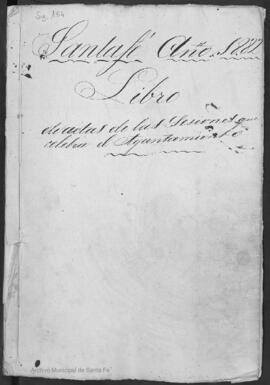 Sg. 184
Santafé Año 1882
Libro
de actas de las Sesiones que
celebra el Ayuntamiento
Archivo Municipal de Santa Fe